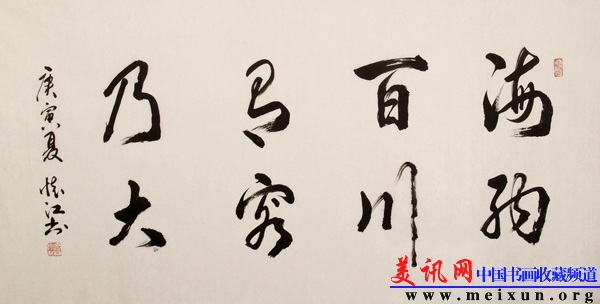 海纳
百川
有容
乃大
庚寅夏 怀江书
美讯网 中国书画收藏频道
www.meixun.org